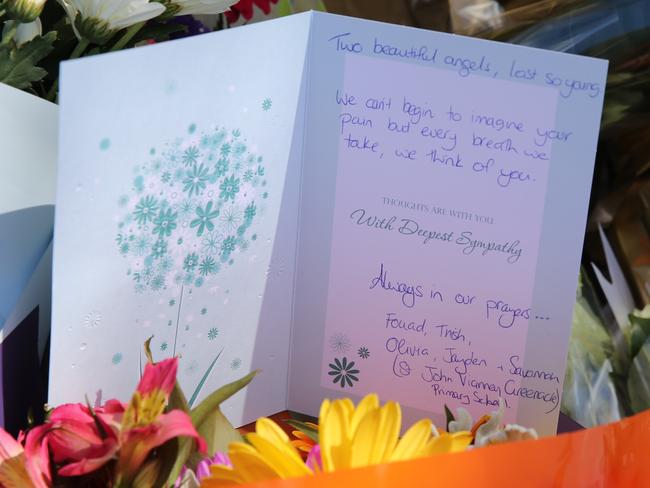 Two beautiful angels, lost so young.
We can't begin to imagine your
pain but every breath we
take, we think of you.
THOUGHTS ARE WITH YOU
With Deepest Sympathy
Always in our prayers...
Fouad, Trish,
Olivia, Jayden + Savannah
(St John Vianney Greenacre)
Primary School.